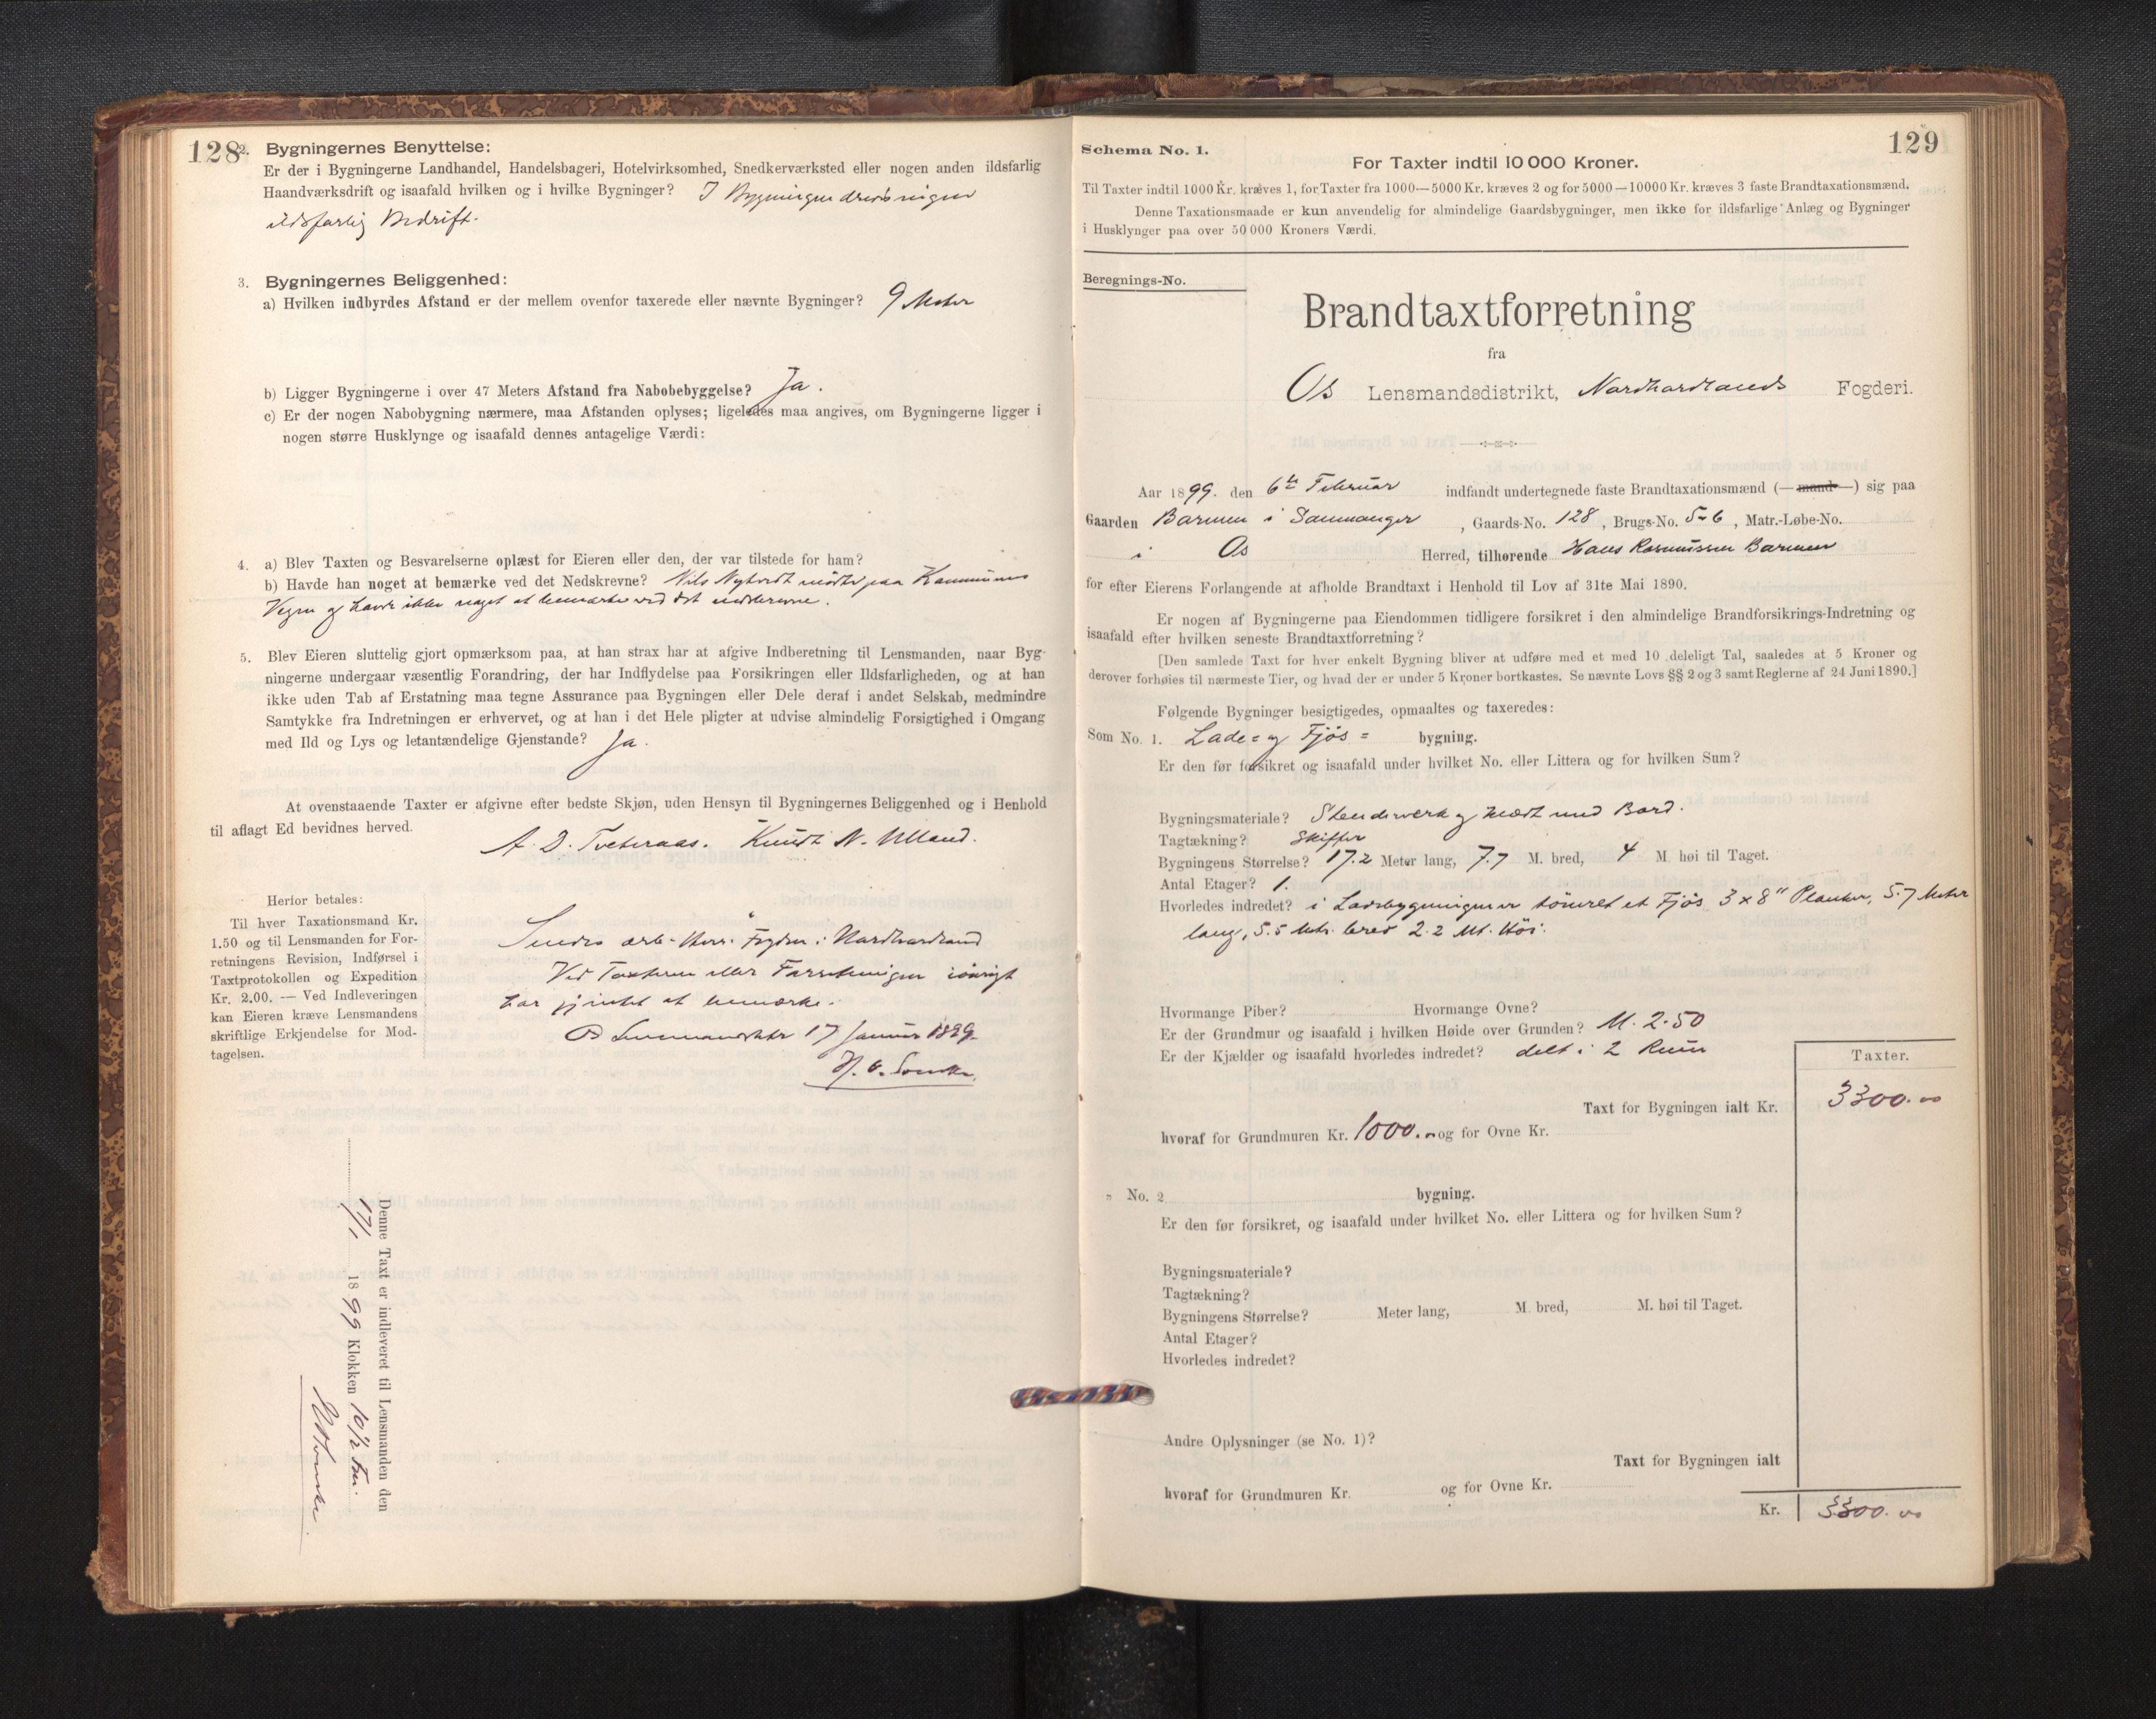 128
2. Bygningernes Benyttelse:
Er der i Bygningerne Landhandel, Handelsbageri, Hotelvirksomhed, Snedkerværksted eller nogen anden ildsfarlig
Haandværksdrift og isaafald hvilken og i hvilke Bygninger? I Bygningen drives ingen
ildsfarlig Bedrift.
3. Bygningernes Beliggenhed:
a) Hvilken indbyrdes Afstand er der mellem ovenfor taxerede eller nævnte Bygninger? 9 Meter
b) Ligger Bygningerne i over 47 Meters Afstand fra Nabobebyggelse? Ja.
c) Er der nogen Nabobygning nærmere, maa Afstanden oplyses; ligeledes maa angives, om Bygningerne ligger i
nogen større Husklynge og isaafald dennes antagelige Værdi:
4. a) Blev Taxten og Besvarelserne oplæst for Eieren eller den, der var tilstede for ham?
b) Havde han noget at bemærke ved det Nedskrevne? Nils mödte paa Kommunens
Vegne og havde ikke noget at bemærke ved det nedskrevne.
5. Blev Eieren sluttelig gjort opmærksom paa, at han strax har at afgive Indberetning til Lensmanden, naar Byg-
ningerne undergaar væsentlig Forandring, der har Indflydelse paa Forsikringen eller Ildsfarligheden, og at han
ikke uden Tab af Erstatning maa tegne Assurance paa Bygningen eller Dele deraf i andet Selskab, medmindre
Samtykke fra Indretningen er erhvervet, og at han i det Hele pligter at udvise almindelig Forsigtighed i Omgang
med Ild og Lys og letantændelige Gjenstande? Ja.
At ovenstaaende Taxter er afgivne efter bedste Skjøn, uden Hensyn til Bygningernes Beliggenhed og i Henhold
til aflagt Ed bevidnes herved.
A. D. Tveteraas. Knudt N. Ulland.
Herfor betales:
Til hver Taxationsmand Kr.
1.50 og til Lensmanden for For-
retningens Revision, Indførsel i
Taxtprotokollen og Expedition
Kr. 2,00. — Ved Indleveringen
kan Eieren kræve Lensmandens
skriftlige Erkjendelse for Mod-
tagelsen.
Sendes ærb. Herr Fogden i Nordhordland
Ved Taxterne eller Forretningen iövrigt
har jeg intet at bemærke.
Os Lensmandsktr 17 Januar 1899.
Denne Taxt er indleveret til Lensmanden den
17/1 1899 Klokken 10 1/2 Fm.
129
Schema No. 1.
For Taxter indtil 10 000 Kroner.
Til Taxter indtil 1000 Kr. kræves 1, for Taxter fra 1000—5000 Kr. kræves 2 og for 5000—10000 Kr. kræves 3 faste Brandtaxationsmænd.
Denne Taxationsmaade er kun anvendelig for almindelige Gaardsbygninger, men ikke for ildsfarlige Anlæg og Bygninger
i Husklynger paa over 50 000 Kroners Værdi.
Beregnings-No.
Brandtaxtforretning
fra
Os Lensmandsdistrikt, Nordhordlands Fogderi.
Aar 1899. den 6te Februar indfandt undertegnede faste Brandtaxationsmænd (—mand—) sig paa
Gaarden Barmen i Sammanger, Gaards-No. 128, Brugs-No. 5-6, Matr.-Løbe-No.
i Os Herred, tilhørende Hans Rasmussen Barmen
for efter Eierens Forlangende at afholde Brandtaxt i Henhold til Lov af 31te Mai 1890.
Er nogen af Bygningerne paa Eiendommen tidligere forsikret i den almindelige Brandforsikrings-Indretning og
isaafald efter hvilken seneste Brandtaxtforretning?
[Den samlede Taxt for hver enkelt Bygning bliver at udføre med et med 10 deleligt Tal, saaledes at 5 Kroner og
derover forhøies til nærmeste Tier, og hvad der er under 5 Kroner bortkastes. Se nævnte Lovs §§ 2 og 3 samt Reglerne af 24 Juni 1890.]
Følgende Bygninger besigtigedes, opmaaltes og taxeredes:
Som No. 1. Lade= og Fjös= bygning.
Er den før forsikret og isaafald under hvilket No. eller Littera og for hvilken Sum?
Bygningsmateriale? Stenderverk og klædt med Bord.
Tagtækning? Skiffer
Bygningens Størrelse? 17.2 Meter lang, 7.7 M. bred, 4 M. høi til Taget.
Antal Etager? 1.
Hvorledes indredet? i Ladebygningen er tömret et Fjös 3 x 8" Planker, 5.7 Meter
lang, 5.5 Mtr. bred 2.2 Mt. Höi.
Hvormange Piber? Hvormange Ovne?
Er der Grundmur og isaafald i hvilken Høide over Grunden? M. 2.50
Er der Kjælder og isaafald hvorledes indredet? delt i 2 Rum
Taxter.
Taxt for Bygningen ialt Kr. 3300.00
hvoraf for Grundmuren Kr. 1000.00 og for Ovne Kr.
" No. 2 bygning.
Er den før forsikret, og isaafald under hvilket No. eller Littera og for hvilken Sum?
Bygningsmateriale?
Tagtækning?
Bygningens Størrelse? Meter lang, M. bred, M. høi til Taget.
Antal Etager?
Hvorledes indredet?
Andre Oplysninger (se No. 1)?
Taxt for Bygningen ialt
hvoraf for Grundmuren Kr. og for Ovne Kr.
Kr. 3300.00